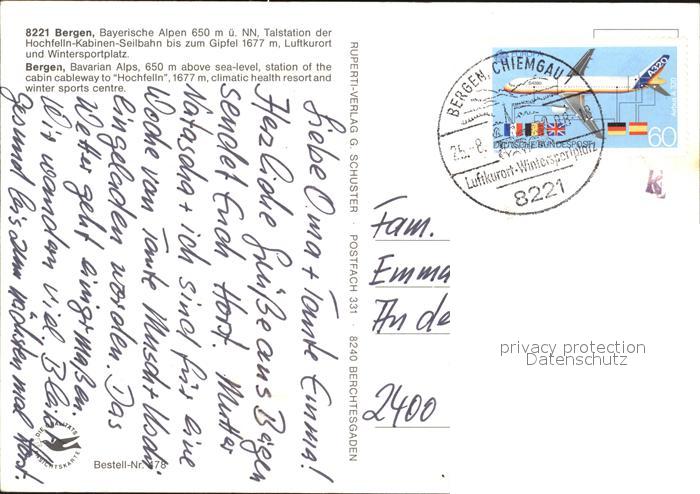 8221 Bergen, Bayerische Alpen 650 m ü. NN, Talstation der
Hochfelln-Kabinen-Seilbahn bis zum Gipfel 1677 m, Luftkurort
und Wintersportplatz.
Bergen, Bavarian Alps, 650 m above sea-level, station of the
cabin cableway to "Hochfelln", 1677 m, climatic health resort and
winter sports centre.
Liebe Oma + Tante Emma!
Herzliche Grüße aus Bergen
sendet Euch Horst. Mutter
Natascha + ich sind für eine
Woche von Tante Musch + Udo
eingeladen worden. Das
Wetter geht einigermaßen.
Wir wandern viel. Bleibt
gesund bis zum nächsten mal Horst.
DIE QUALITÄTS
ANSICHTSKARTE
Bestell-Nr. 478
RUPERTI-VERLAG G. SCHUSTER · POSTFACH 331 · 8240 BERCHTESGADEN
BERGEN, CHIEMGAU
25.-8.
Luftkurort-Wintersportplatz
8221
A320
Airbus A 320
60
DEUTSCHE BUNDESPOST
Fam.
Emma
An de
2400
privacy protection
Datenschutz